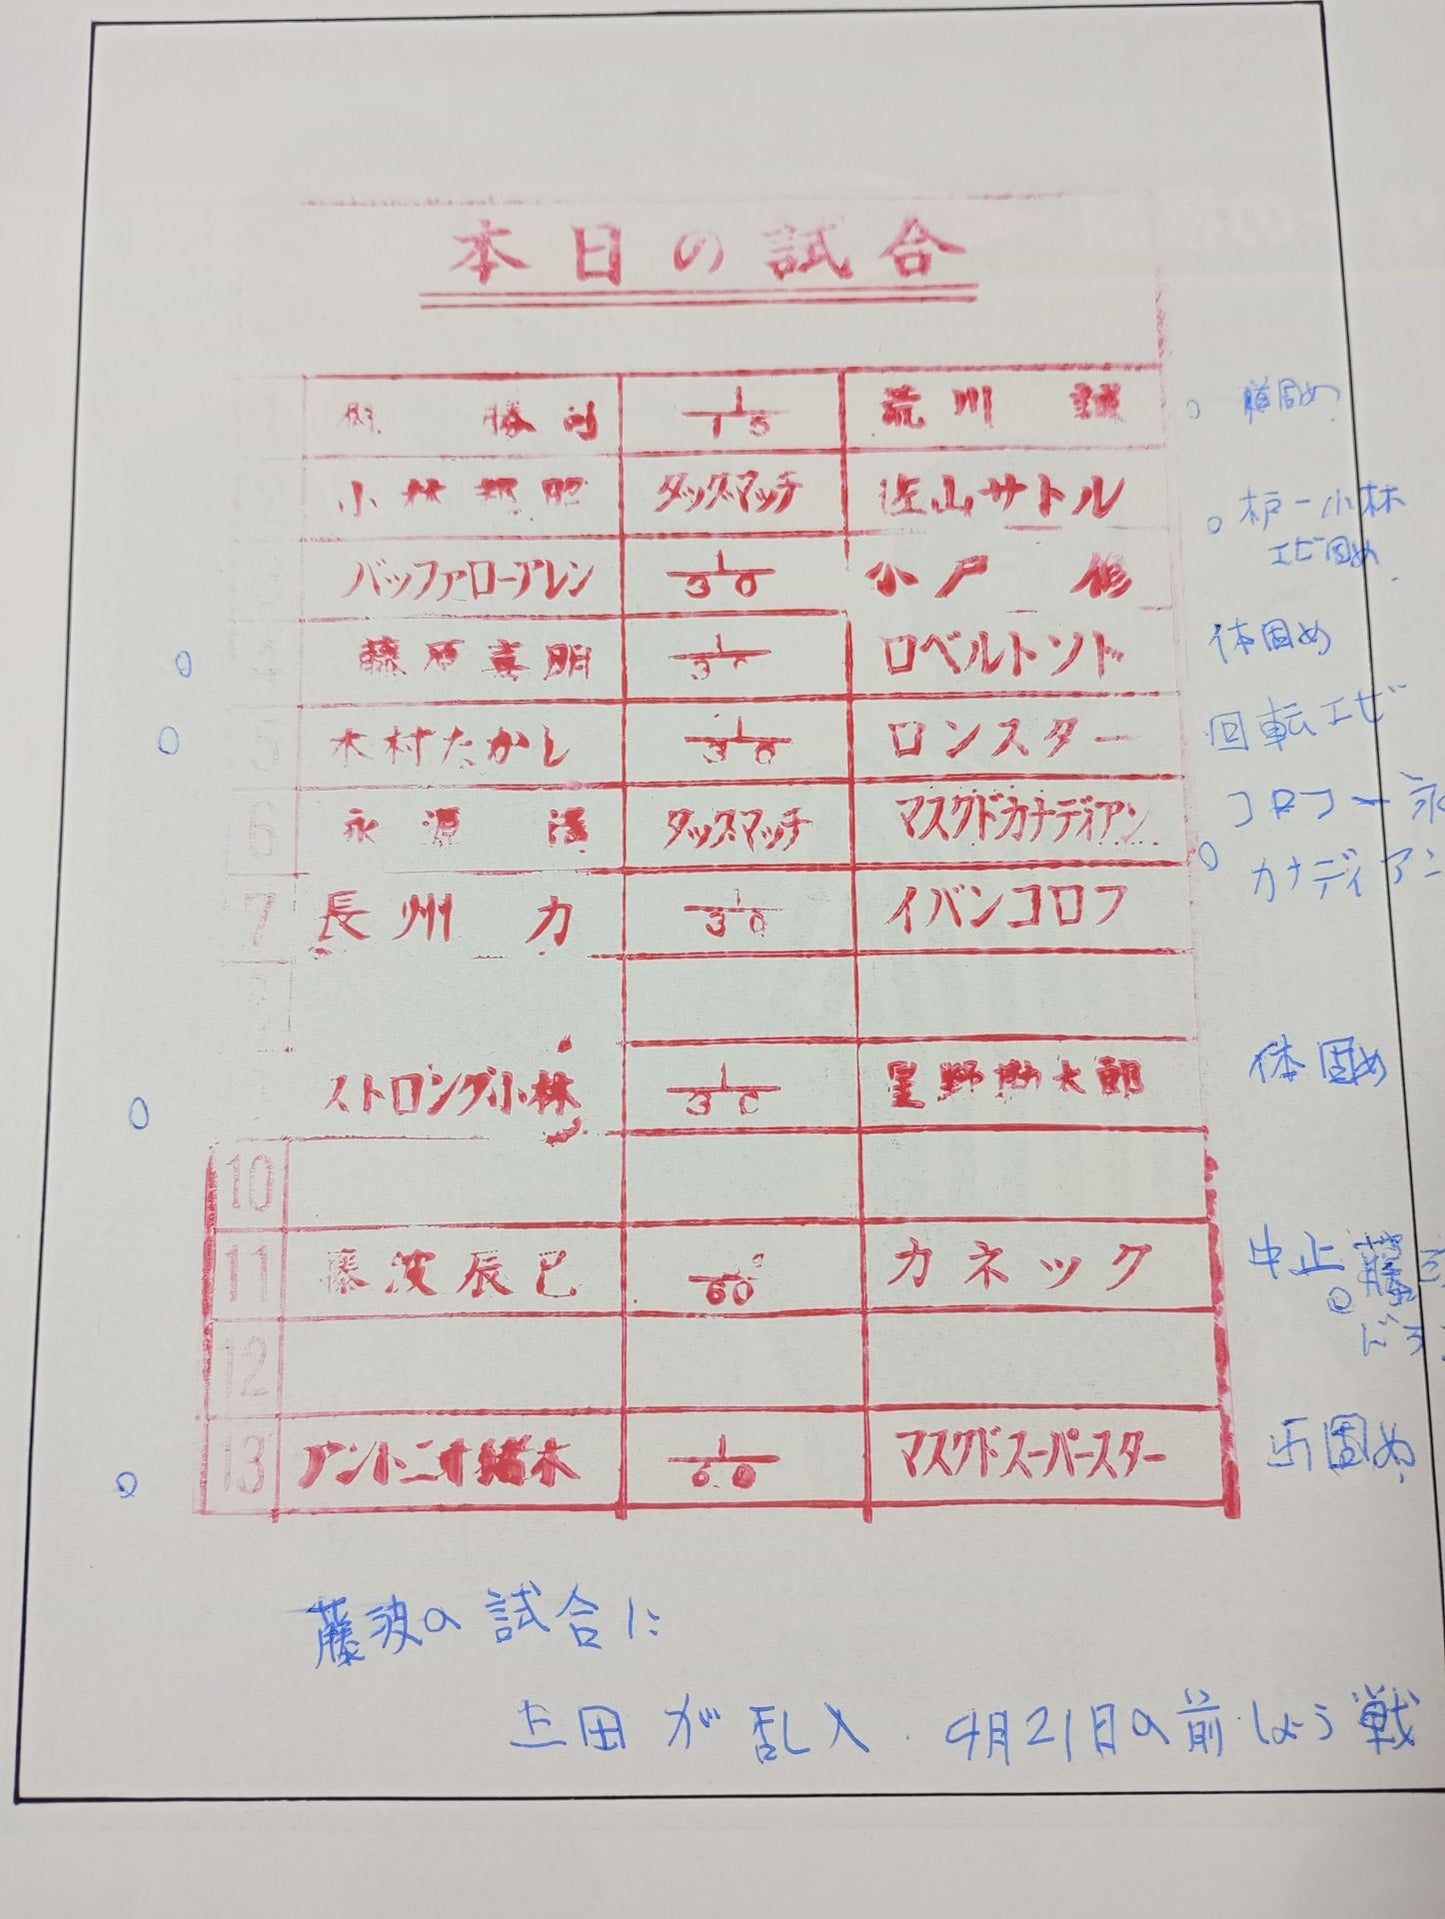 本日の試合
勝利 1/15 荒川 誠 o 固め
小林邦昭 タッグマッチ 佐山サトル
o 木戸ー小林
エビ固め
バッファローアレン 1/30 小戸 修
o 藤原喜明 1/30 ロベルトソト 体固め
o 5 木村たかし 1/30 ロンスター 回転エビ
6 永源 遙 タッグマッチ マスクドカナディアン コロフー永
o カナディアン
7 長州 力 1/30 イバンコロフ
o ストロング小林 1/30 星野勘太郎 体固め
10
11 藤波辰巳 /60 カネック 中止 藤
o
12
o 13 アントニオ猪木 1/60 マスクドスーパースター 固め
藤波の試合に
上田が乱入. 4月21日の前しょう戦